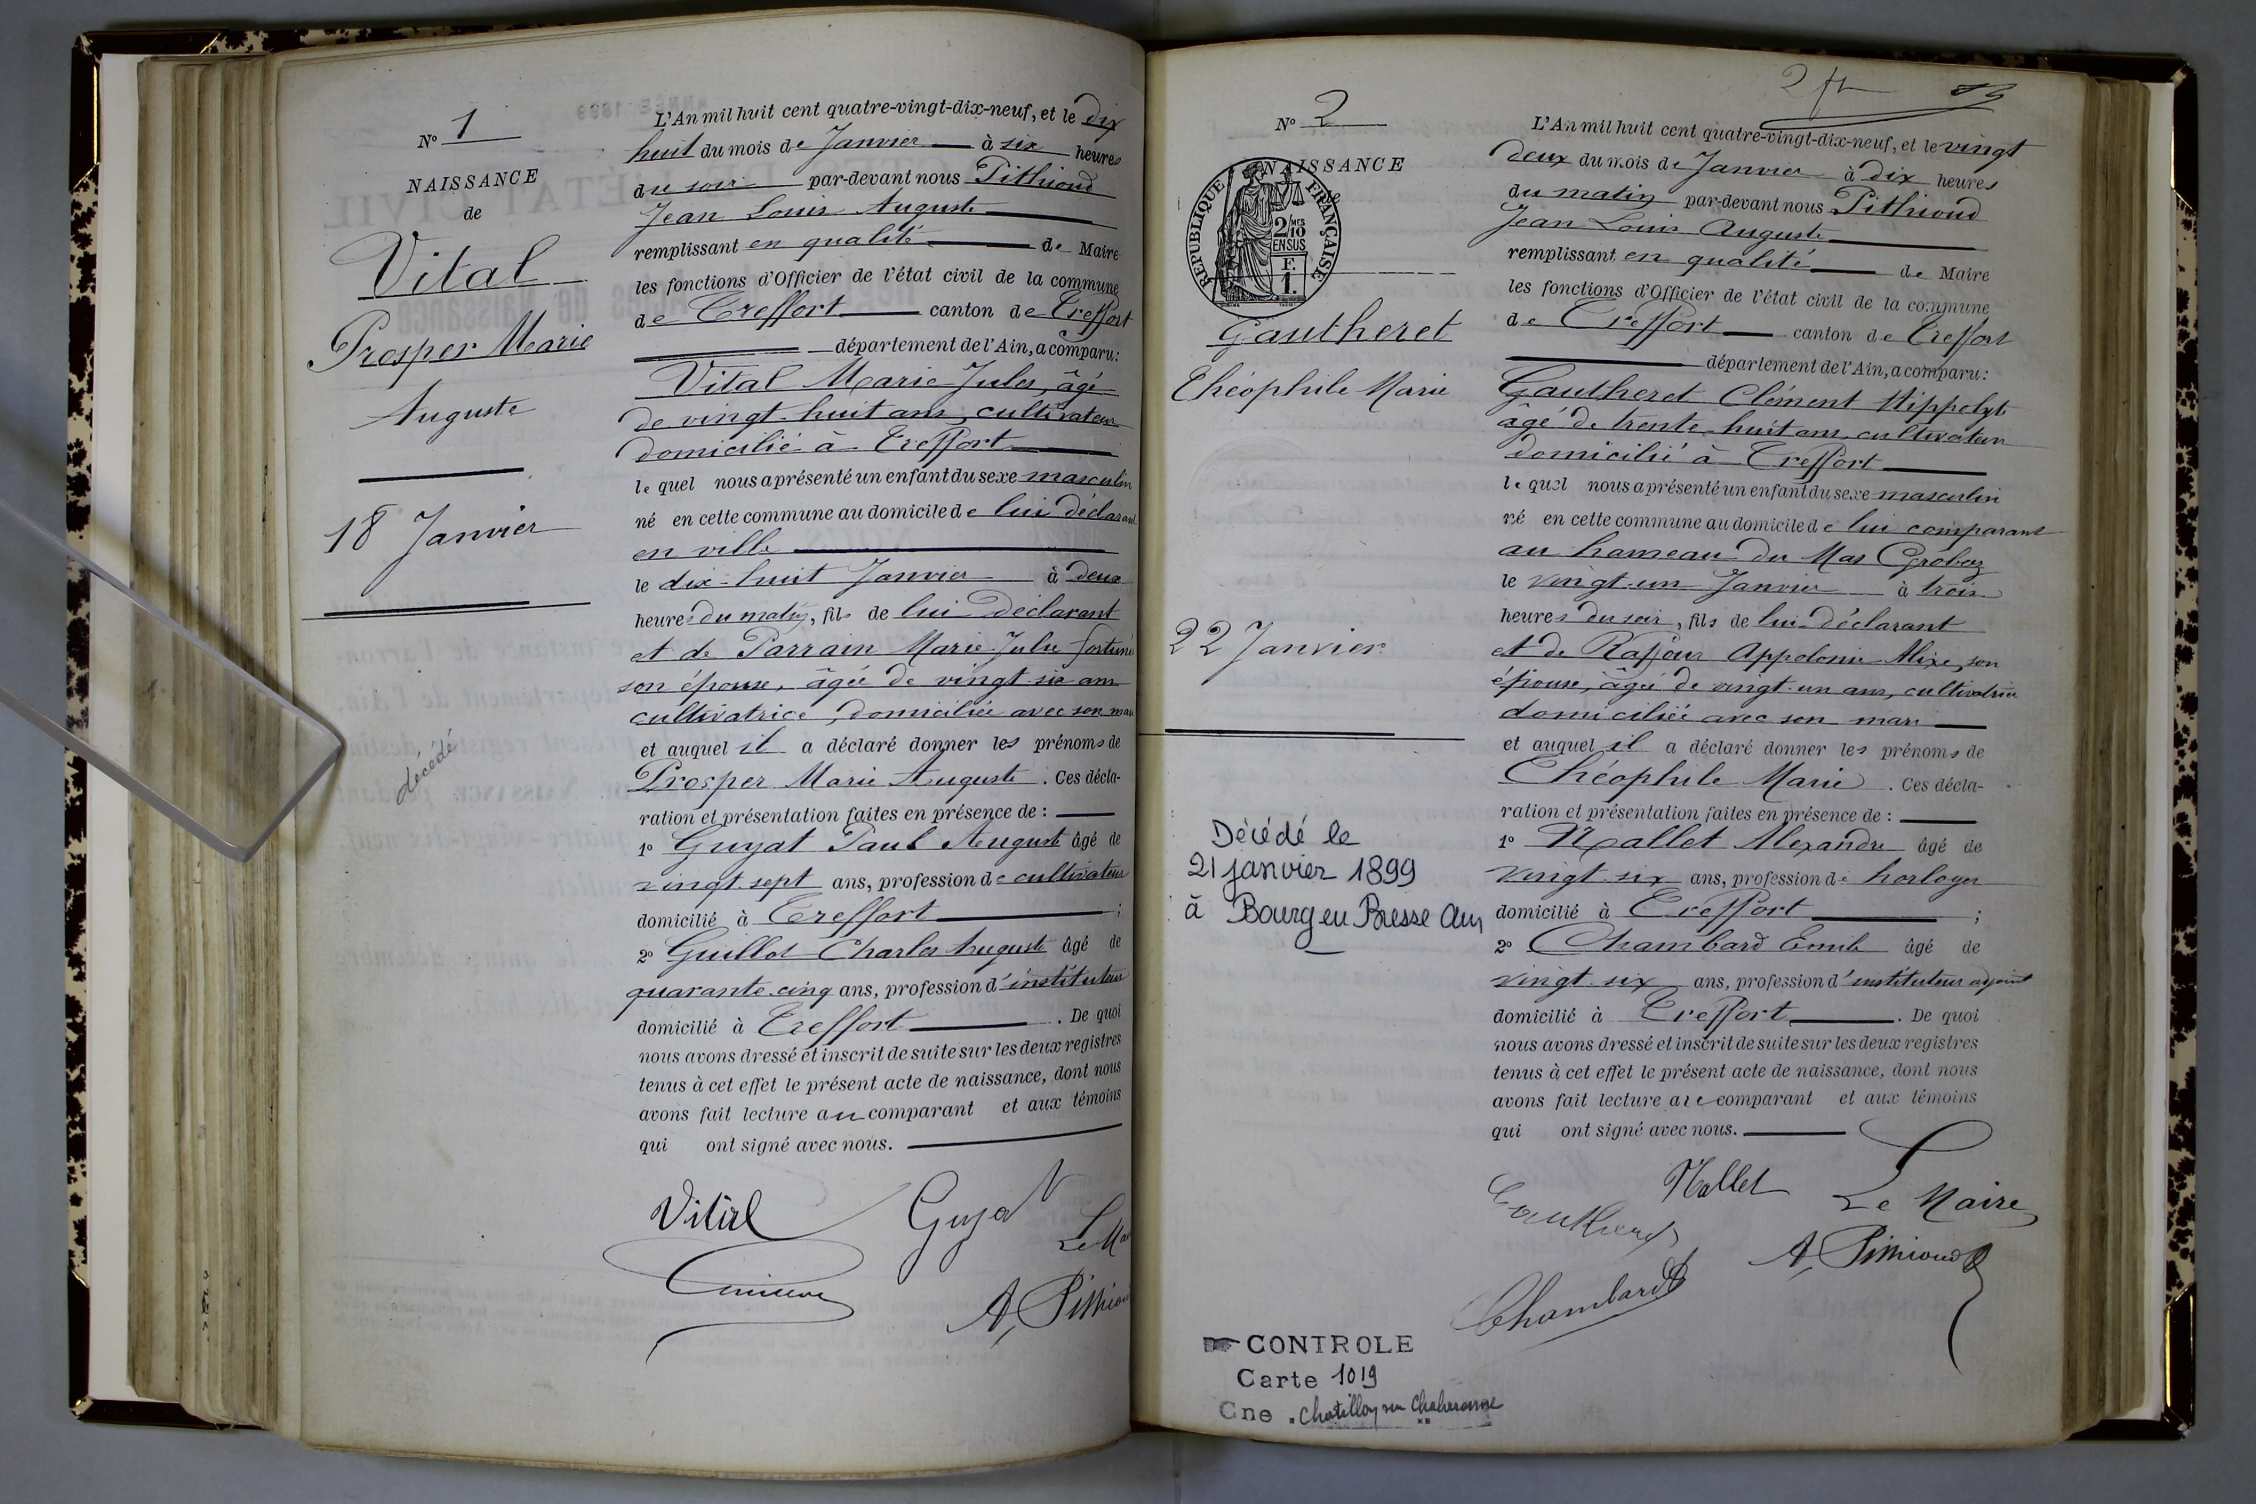 N° 1
NAISSANCE
de
Vital
Prosper Marie
Auguste
18 Janvier
décédé
L'An mil huit cent quatre-vingt-dix-neuf, et le dix
huit du mois de Janvier à six heures
du soir par-devant nous Pithioud
Jean Louis Auguste
remplissant en qualité de Maire
les fonctions d'Officier de l'état civil de la commune
de Treffort canton de Treffort
département de l'Ain, a comparu:
Vital Marie Jules, âgé
de vingt-huit ans, cultivateur
domicilié à Treffort
le quel nous a présenté un enfant du sexe masculin
né en cette commune au domicile de lui déclarant
en ville
le dix-huit Janvier à deux
heures du matin, fils de lui déclarant
et de Parrain Marie Julie Fortunée
son épouse, âgée de vingt-six ans
cultivatrice, domiciliée avec son mari
et auquel il a déclaré donner les prénoms de
Prosper Marie Auguste. Ces décla-
ration et présentation faites en présence de :
1° Guyat Paul Auguste âgé de
vingt-sept ans, profession de cultivateur
domicilié à Treffort ;
2° Guillot Charles Auguste âgé de
quarante-cinq ans, profession d'instituteur
domicilié à Treffort. De quoi
nous avons dressé et inscrit de suite sur les deux registres
tenus à cet effet le présent acte de naissance, dont nous
avons fait lecture au comparant et aux témoins
qui ont signé avec nous.
Vital Guyat
Le Ma
A, Pithiou
2 19
N° 2
NAISSANCE
de
REPUBLIQUE FRANÇAISE
2/10 MES
EN SUS
F.
1.
Gautheret
Théophile Marie
22 Janvier
Décédé le
21 janvier 1899
à Bourg en Bresse Ain
L'An mil huit cent quatre-vingt-dix-neuf, et le vingt
deux du mois de Janvier à dix heures
du matin par-devant nous Pithioud
Jean Louis Auguste
remplissant en qualité de Maire
les fonctions d'Officier de l'état civil de la commune
de Treffort canton de Treffort
département de l'Ain, a comparu:
Gautheret Clément Hippolyte
âgé de trente-huit ans, cultivateur
domicilié à Treffort
le quel nous a présenté un enfant du sexe masculin
né en cette commune au domicile de lui comparant
au hameau du Mas Groboz
le vingt-un Janvier à trois
heures du soir, fils de lui déclarant
et de Raffour Appolonie Alixe, son
épouse, âgée de vingt-un ans, cultivatrice
domiciliée avec son mari
et auquel il a déclaré donner les prénoms de
Théophile Marie. Ces décla-
ration et présentation faites en présence de :
1° Nallet Alexandre âgé de
vingt-six ans, profession de horloger
domicilié à Treffort ;
2° Chambard Emile âgé de
vingt-six ans, profession d'instituteur adjoint
domicilié à Treffort. De quoi
nous avons dressé et inscrit de suite sur les deux registres
tenus à cet effet le présent acte de naissance, dont nous
avons fait lecture au comparant et aux témoins
qui ont signé avec nous.
Gautheret Nallet Le Maire
Chambard A, Pithioud
CONTROLE
Carte 1019
Cne . Chatillon sur Chalaronne